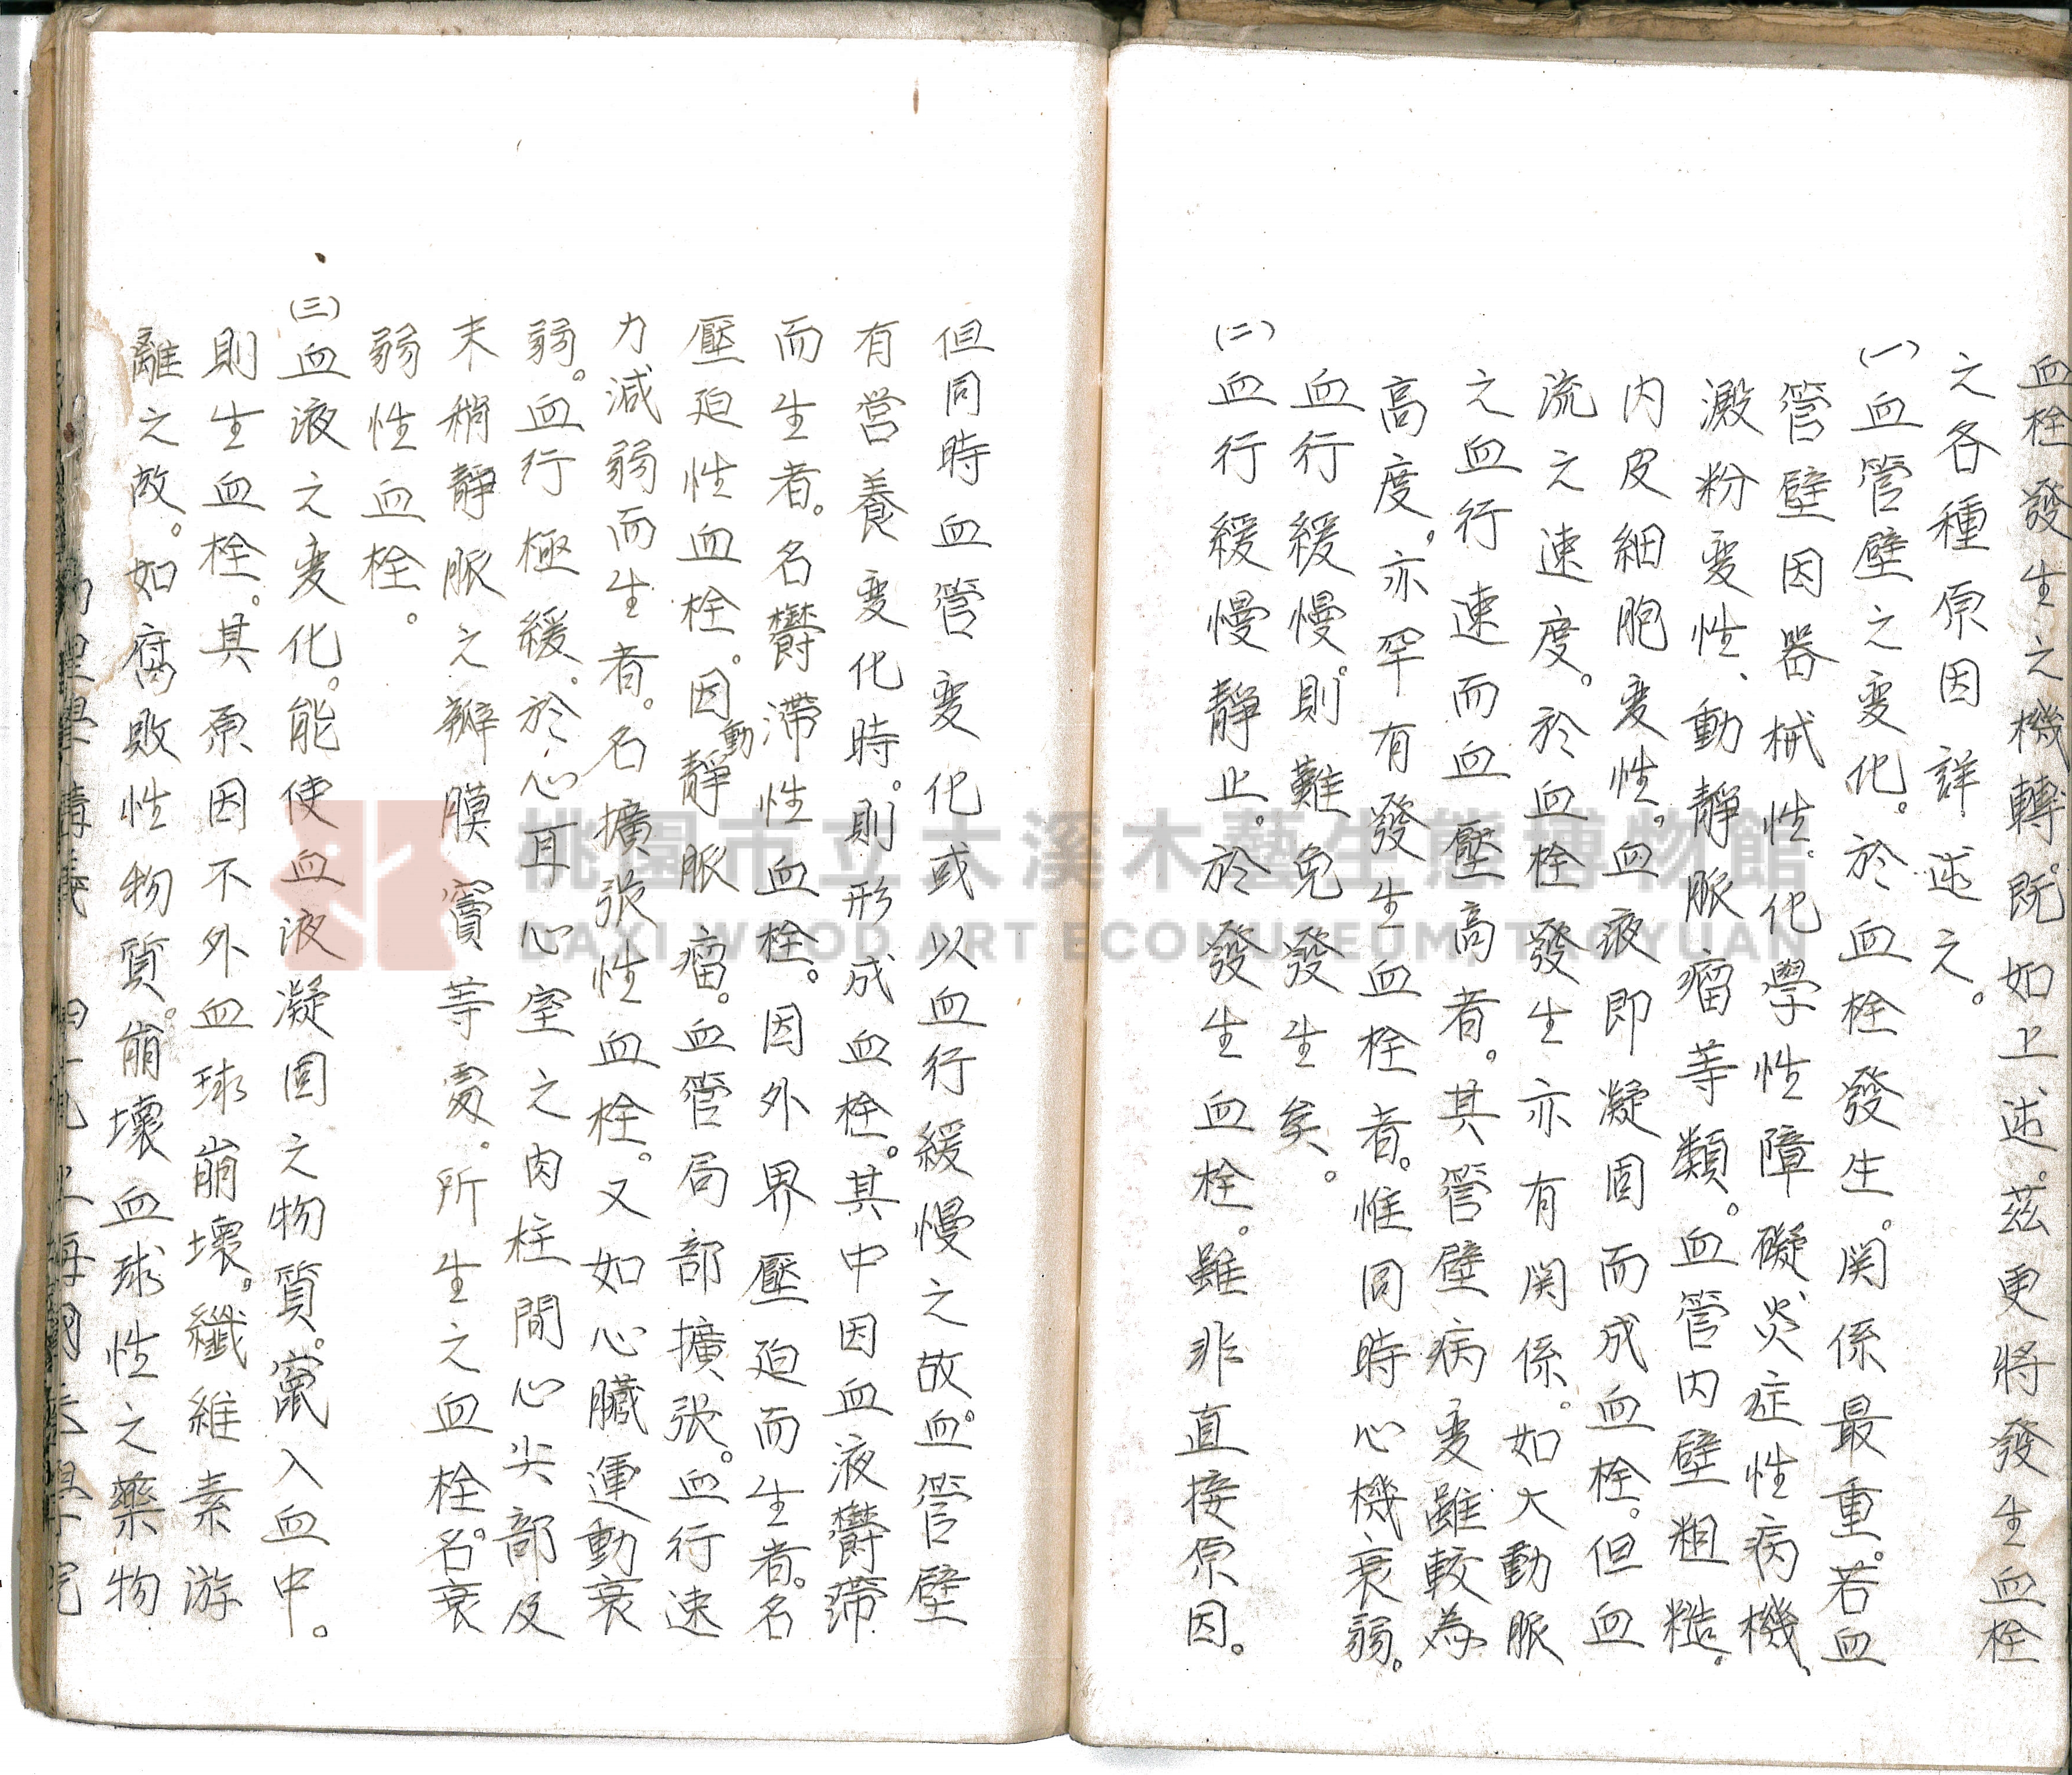 血栓發生之機轉。既如上述。茲更將發生血栓
之各種原因詳述之。
(一)血管壁之變化。於血栓發生。関係最重。若血
管壁因器械性。化學性障礙炎症性病機、
澱粉變性、動靜脈瘤等類。血管内壁粗糙。
内皮細胞變性。血液即凝固而成血栓。但血
流之速度。於血栓發生亦有関係。如大動脈
之血行速而血壓高者。其管壁病變雖較為
高度。亦罕有發生血栓者。惟同時心機衰弱。
血行緩慢。則難免發生矣。
(二)血行緩慢靜止。於發生血栓。雖非直接原因。
但同時血管變化或以血行緩慢之故。血管壁
有営養變化時。則形成血栓。其中因血液欝滯
而生者。名欝滯性血栓。因外界壓迫而生者。名
壓迫性血栓。因靜動脈瘤。血管局部擴張。血行速
力減弱而生者。名擴張性血栓。又如心臟運動衰
弱。血行極緩。於心耳心室之肉柱間心尖部及
末稍靜脈之瓣膜竇等處。所生之血栓。名衰
弱性血栓。
(三)血液之變化。能使血液凝固之物質。竄入血中。
則生血栓。其原因不外血球崩壞。纖維素游
離之故。如腐敗性物質。崩壞血球性之藥物
桃園市立大溪木藝生態博物館
DAXI WOOD ART ECOMUSEUM, TAOYUAN